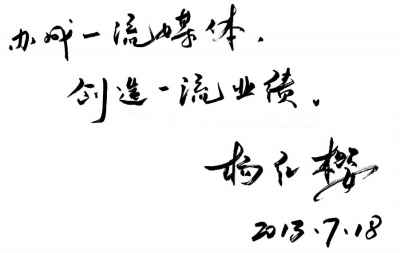 办成一流媒体.
创造一流业绩。
杨红樱
2013.7.18